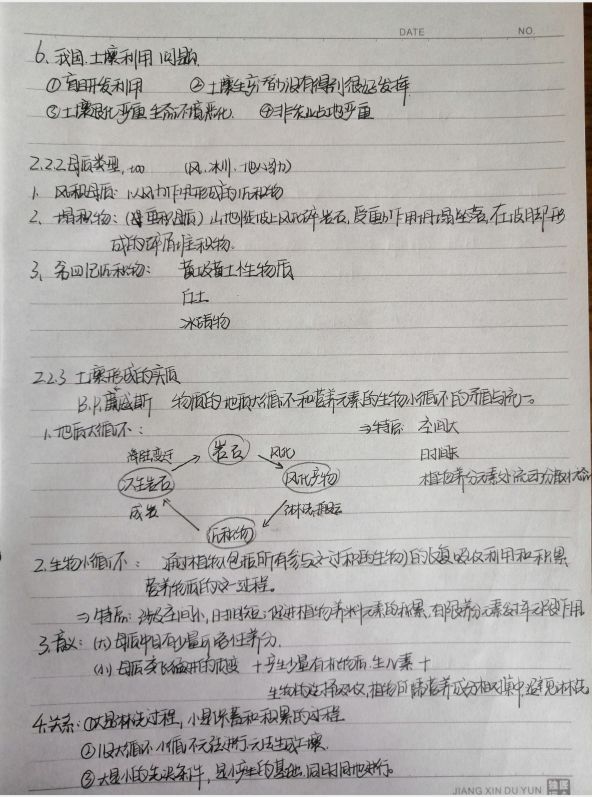 DATE NO.
6、我国土壤利用问题
①盲目开发利用 ②土壤生产潜力没有得到很好发挥
③土壤退化严重 生态环境恶化 ④非农业占地严重
2.2.2 母质类型 (风、冰川、重力)
1、风积母质：以风力作用形成的沉积物
2、塌积物：(重积母质)山地陡坡上风化碎岩石，受重力作用崩塌坠落，在坡脚形
成的碎屑堆积物
3、第四纪沉积物： 黄土
冰碛物
2.2.3 土壤形成的实质
B.P.威廉斯 物质的地质大循环和营养元素的生物小循环的矛盾与统一。
1、地质大循环： ⇒特点： 空间大
时间长
植物养分元素
岩石 风化 风化产物 淋洗 沉积物 成岩 次生岩石
2、生物小循环： 植物(包括所有参与这过程的生物)的 吸收利用和积累
营养物质的这一过程。
⇒特点：涉及空间小，时间短；促进植物养料元素的积累，有限养分元素发挥无限作用
3、意义：(大)母质中含有少量 养分
(小)母质 生少量有机物质、 素
生物的选择吸收，植物所需营养成分相对集中 避免淋洗
4、关系：①大是淋洗过程，小是保蓄和积累的过程
②只大循环 小循环无法进行 无法生成土壤
③大是小的先决条件，是小产生的基础，同时同地进行。
JIANG XIN DU YUN